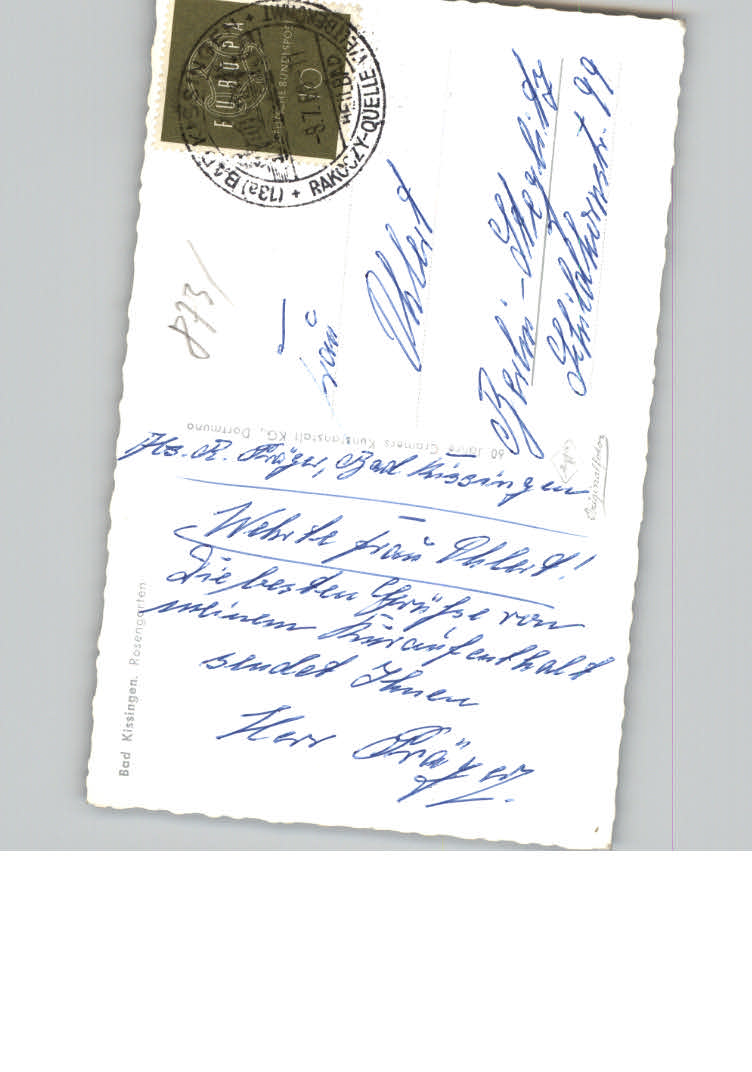 Hs. R. Präger, Bad Kissingen
Wehrte Frau Ohlert!
Die besten Grüße von
meinem Kuraufenthalt
sendet Ihnen
Herr Präger.
Frau
Ohlert
Berlin-Steglitz
Schildhornstr. 99
8731
EUROPA
DEUTSCHE BUNDESPOST
10
(13a) BAD KISSINGEN + RAKOCZY-QUELLE
HEILBAD
Bad Kissingen. Rosengarten
60 Jahre Cramers Kunstanstalt KG., Dortmund
Originalfoto